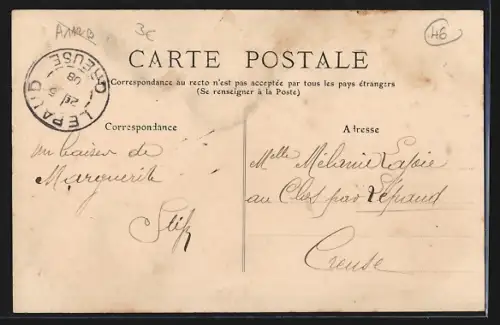 3€
46
CARTE POSTALE
Correspondance au recto n'est pas acceptée par tous les pays étrangers
(Se renseigner à la Poste)
LEPAUD CREUSE
08
Correspondance
un baiser de
Marguerite
Adresse
Melle Mélanie
au Clos par Lépaud
Creuse